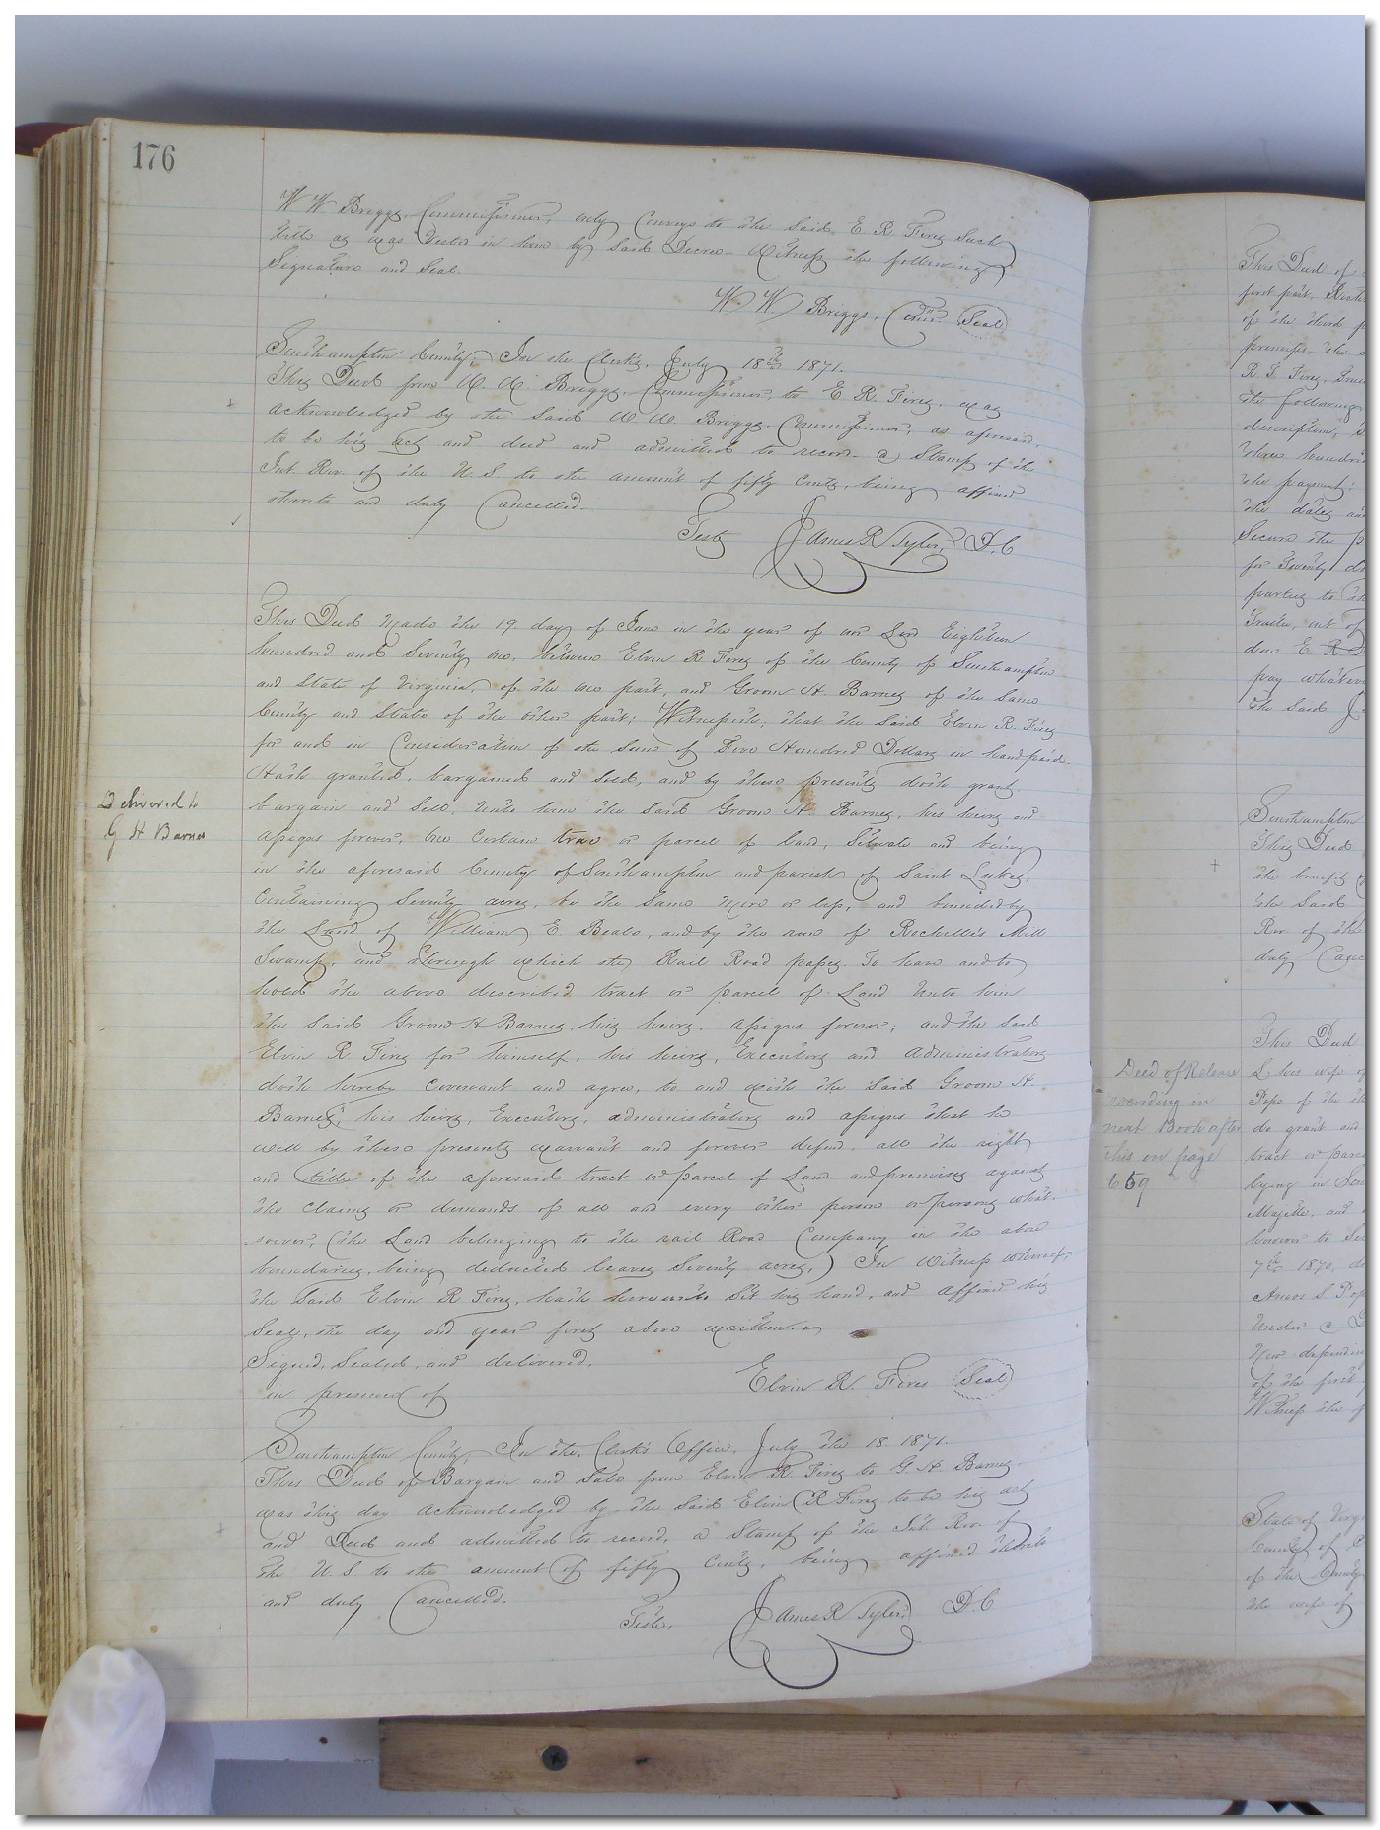 176
W W Briggs, Commissioner, only Conveys to the Said E. R. Fires Such
title as was Vested in him by Said Decree. Witness the following
Signature and Seal.
W. W. Briggs, Comr. Seal
Southampton County; In the Clerk's, July 18th 1871.
This Deed from W. W. Briggs, Commissioner, to E R. Fires, was
acknowledged by the Said W W. Briggs Commissioner, as aforesaid,
to be his act and deed and admitted to record. a Stamp of the
Int. Rev. of the U. S. to the amount of fifty Cents, being affixed
thereto and duly Cancelled.
Teste James R Tyler, D.C
This Deed Made the 19 day of June in the year of our Lord Eighteen
hundred and Seventy one, between Elvin R Fires of the County of Southampton
and State of Virginia, of the one part, and Groom H. Barnes of the Same
County and State of the other part; Witnesseth; that the Said Elvin R. Fires
for and in Consideration of the Sum of Five Hundred Dollars in hand paid
Hath granted, bargained and Sold, and by these presents doth grant
bargain and Sell, Unto him the Said Groom H. Barnes, his heirs and
assigns forever, One Certain trac or parcel of Land, Situate and being
in the aforesaid County of Southampton and parish of Saint Lukes,
Containing Seventy acres, be the Same More or less, and bounded by
the Land of William E. Beale, and by the run of Rochelle's Mill
Swamp, and through which the Rail Road passes. To have and to
hold the above described tract or parcel of Land Unto him
the Said Groom H Barnes his heirs, assigns forever, and the Said
Elvin R Fires for himself, his heirs, Executors and administrators
doth hereby Covenant and agree, to and with the Said Groom H.
Barnes, his heirs, Executors, administrators and assigns that he
will by these presents warrant and forever defend, all the right
and title of the aforesaid tract or parcel of Land and premises against
the claims or demands of all and every other person or persons what-
soever, (the Land belonging to the rail Road Company in the above
boundaries, being deducted leaves Seventy acres,) In Witness whereof,
the Said Elvin R Fires, hath hereunto Set his hand, and affixed his
Seal, the day and year first above written.
Signed, Sealed, and delivered,
in presence of Elvin R. Fires Seal
Southampton County, In the Clerk's Office, July the 18. 1871.
This Deed of Bargain and Sale from Elvin R. Fires to G. H. Barnes
was this day acknowledged by the Said Elvin R Fires to be his act
and Deed and admitted to record, a Stamp of the Int. Rev. of
the U. S to the amount of fifty Cents, being affixed thereto
and duly Cancelled.
Teste, James R Tyler, D.C
Delivered to
G H Barnes
This Deed of
first part,
of the third
premises the
R. T. Fires,
the following
description,
three hundred
the payment
the dates an
Secure the
for Twenty
parties to
Trustee, out of
due E R
pay whatev
the Said J
Southampton
This Deed
the benefit
the Said
Rev. of the
duly Canc
This Deed
L his wife
Pope of the
do grant and
tract or parce
lying in Sou
Majette, and
known to
7th 1870,
Amos S Pop
Under a D
Now depending
of the first
Witness the
State of Virg
County of
of the County
the wife of
Deed of Release
recording in
next Book after
this on page
659